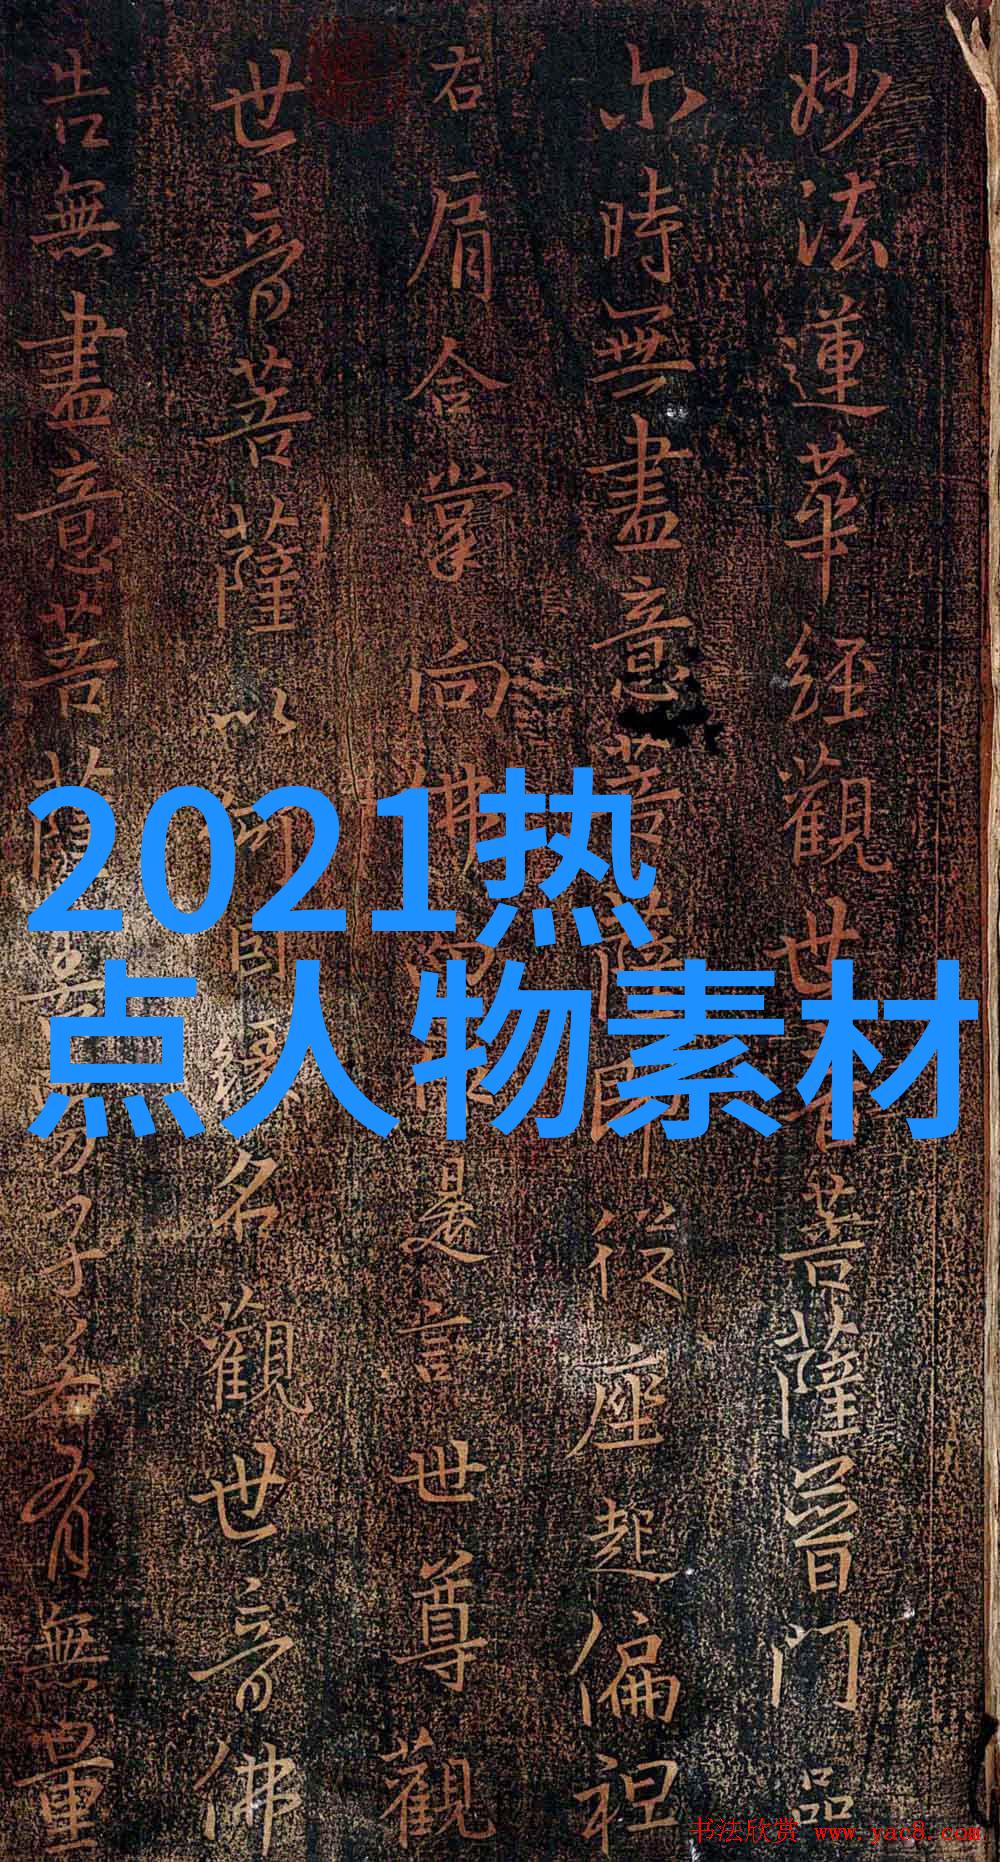 妙法蓮華經觀世音菩薩普門品
尒時無盡意菩薩即從座起偏袒
右肩合掌向佛而作是言世尊觀
世音菩薩以何因緣名觀世音佛
告無盡意菩薩善男子若有無量
2021热
点人物素材
书法欣赏 www.yac8.com